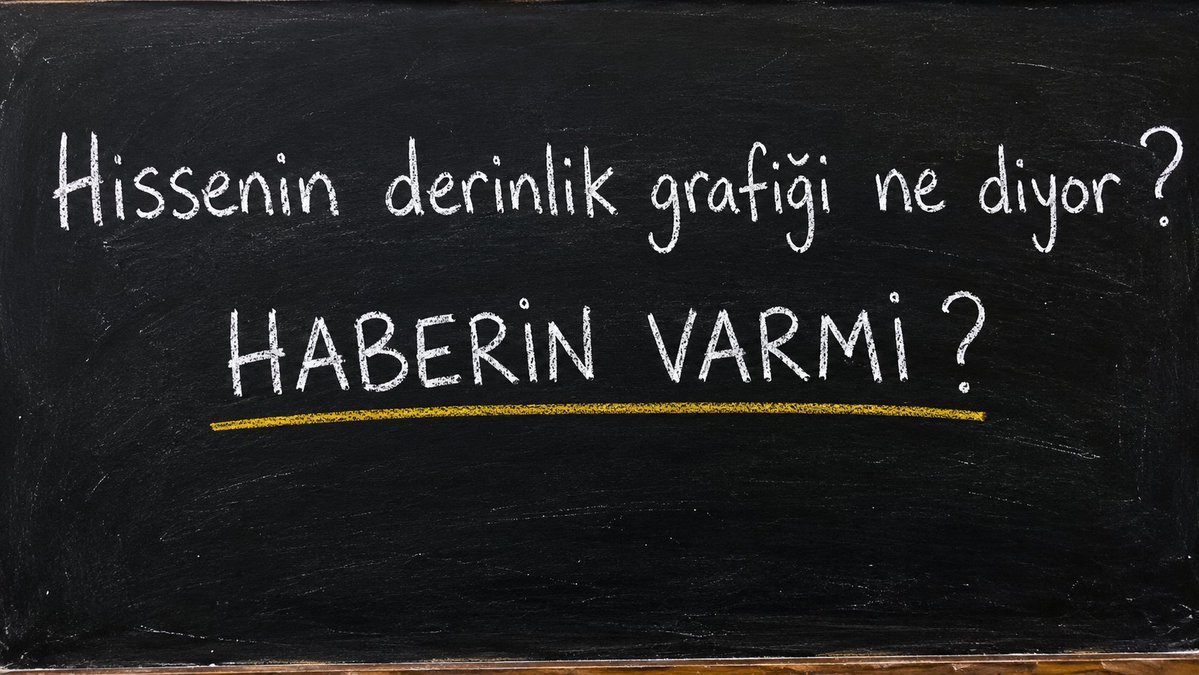 Hissenin derinlik grafiği ne diyor ?
HABERİN VARMİ ?